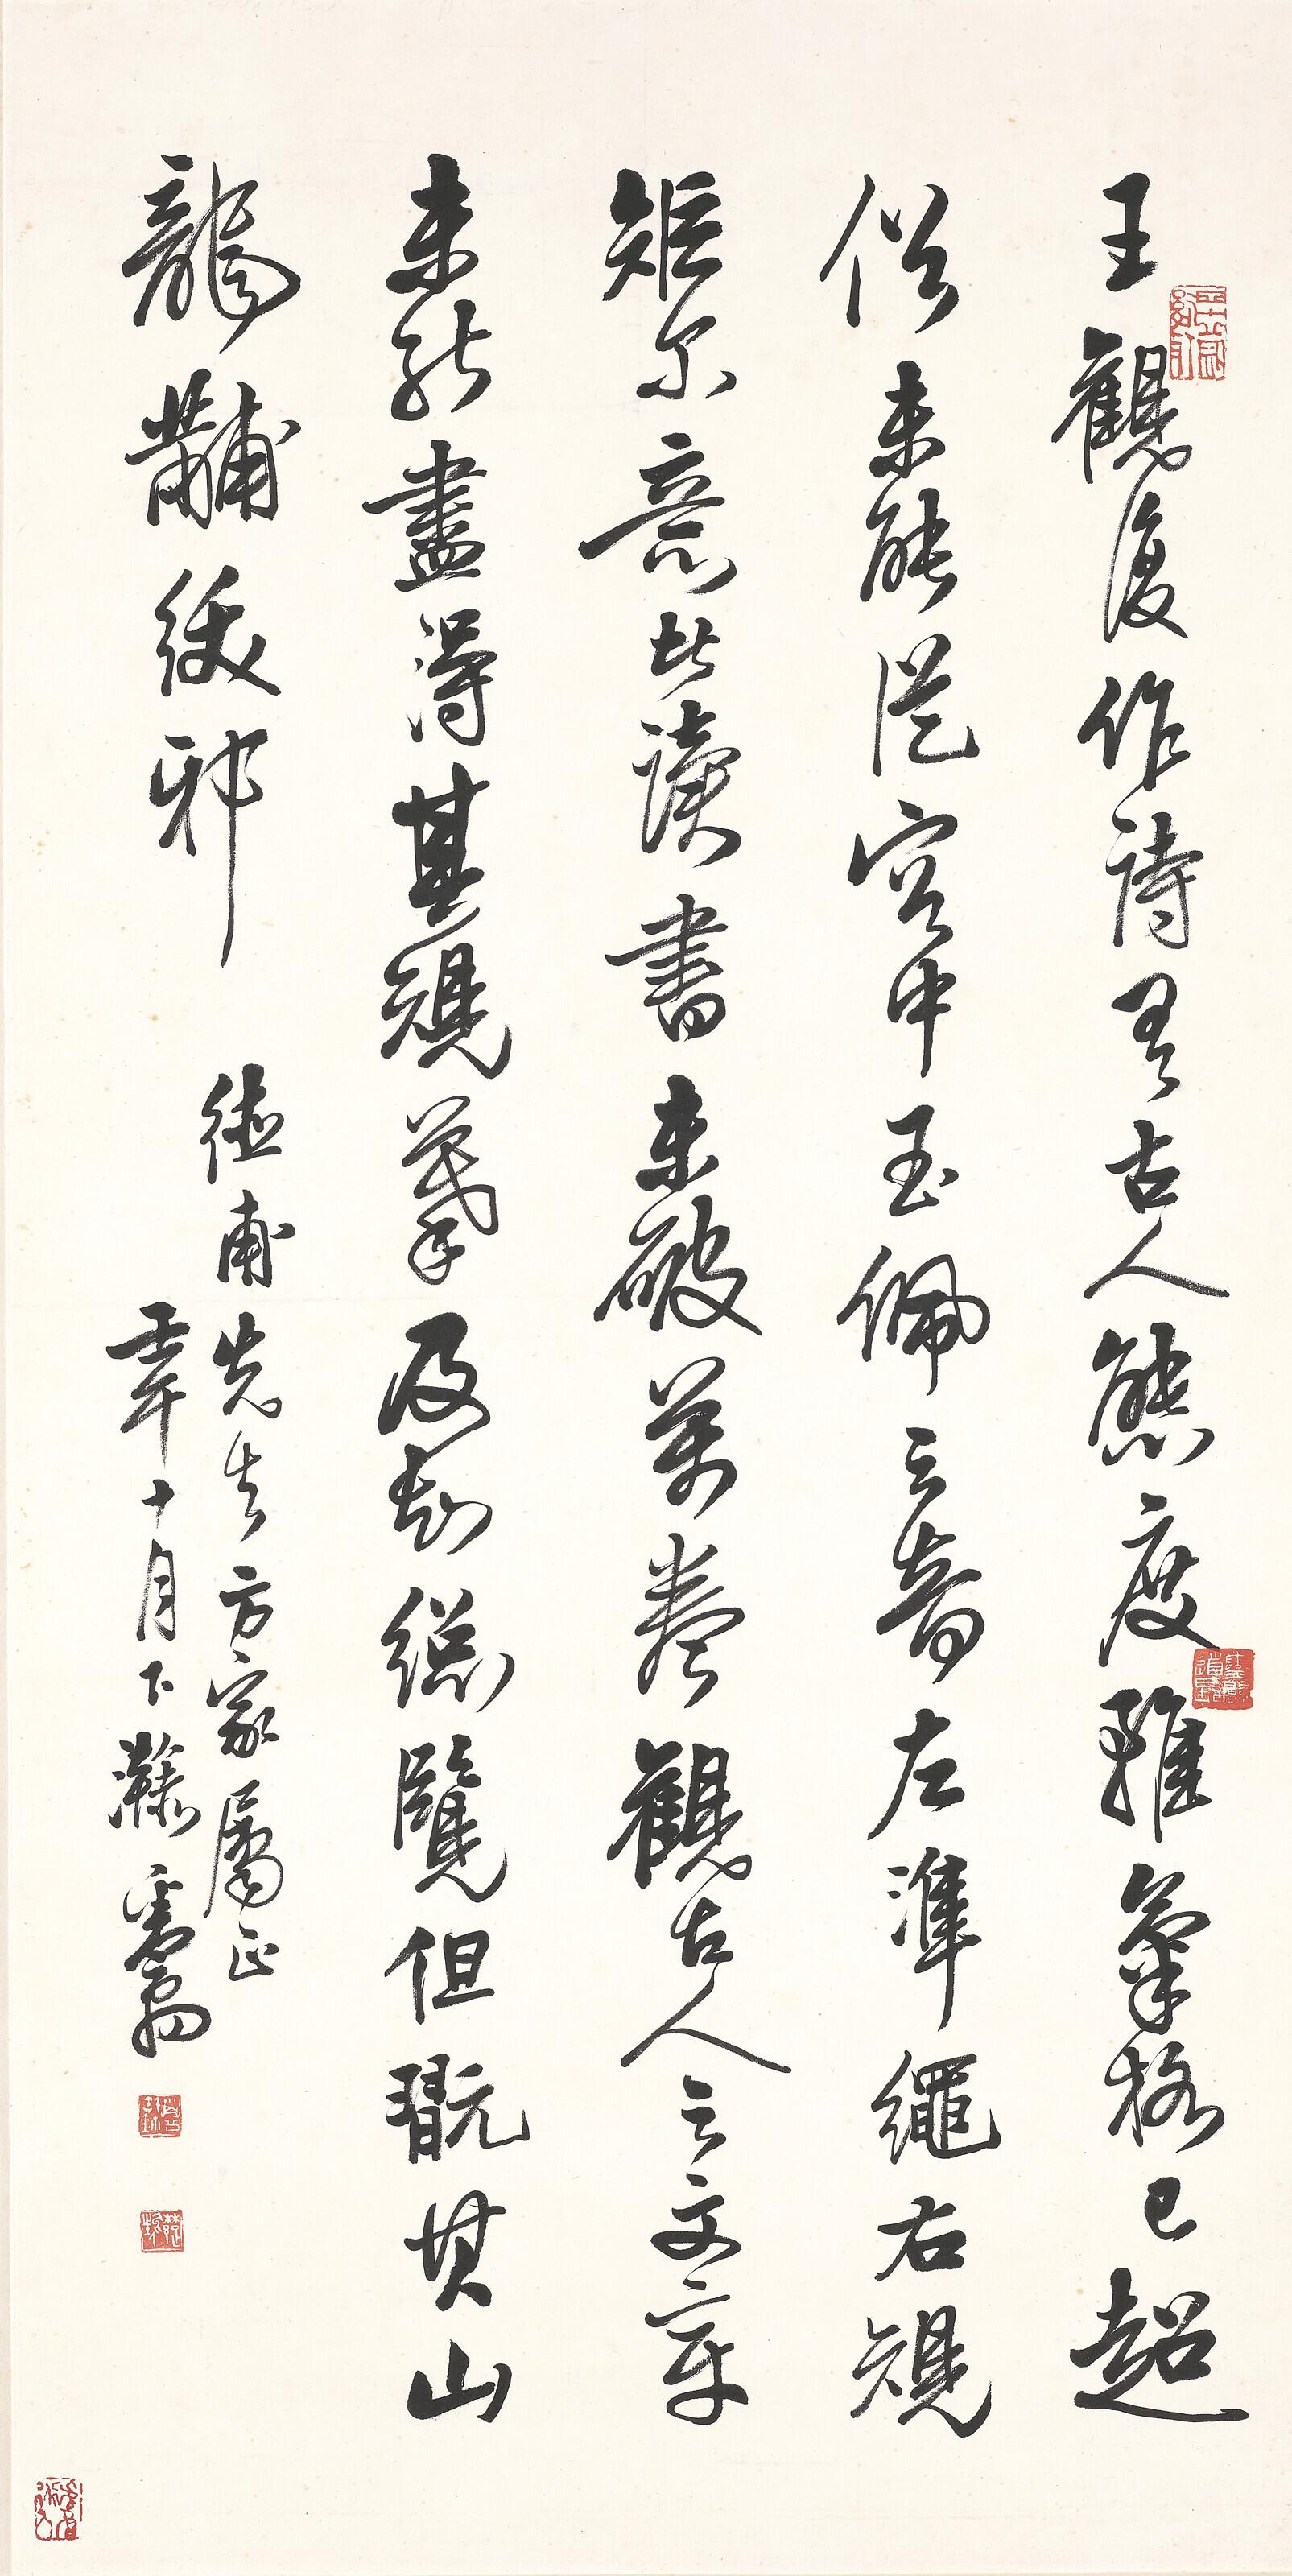 王觀復作詩有古人態度雖氣格已超
俗未能從容中玉佩之音左準繩右規
矩尔意者讀書未破萬卷觀古人之文章
未能盡得其規摹及所總覽但翫其山
龍黼黻邪
德甫先生方家屬正
壬午十月下澣